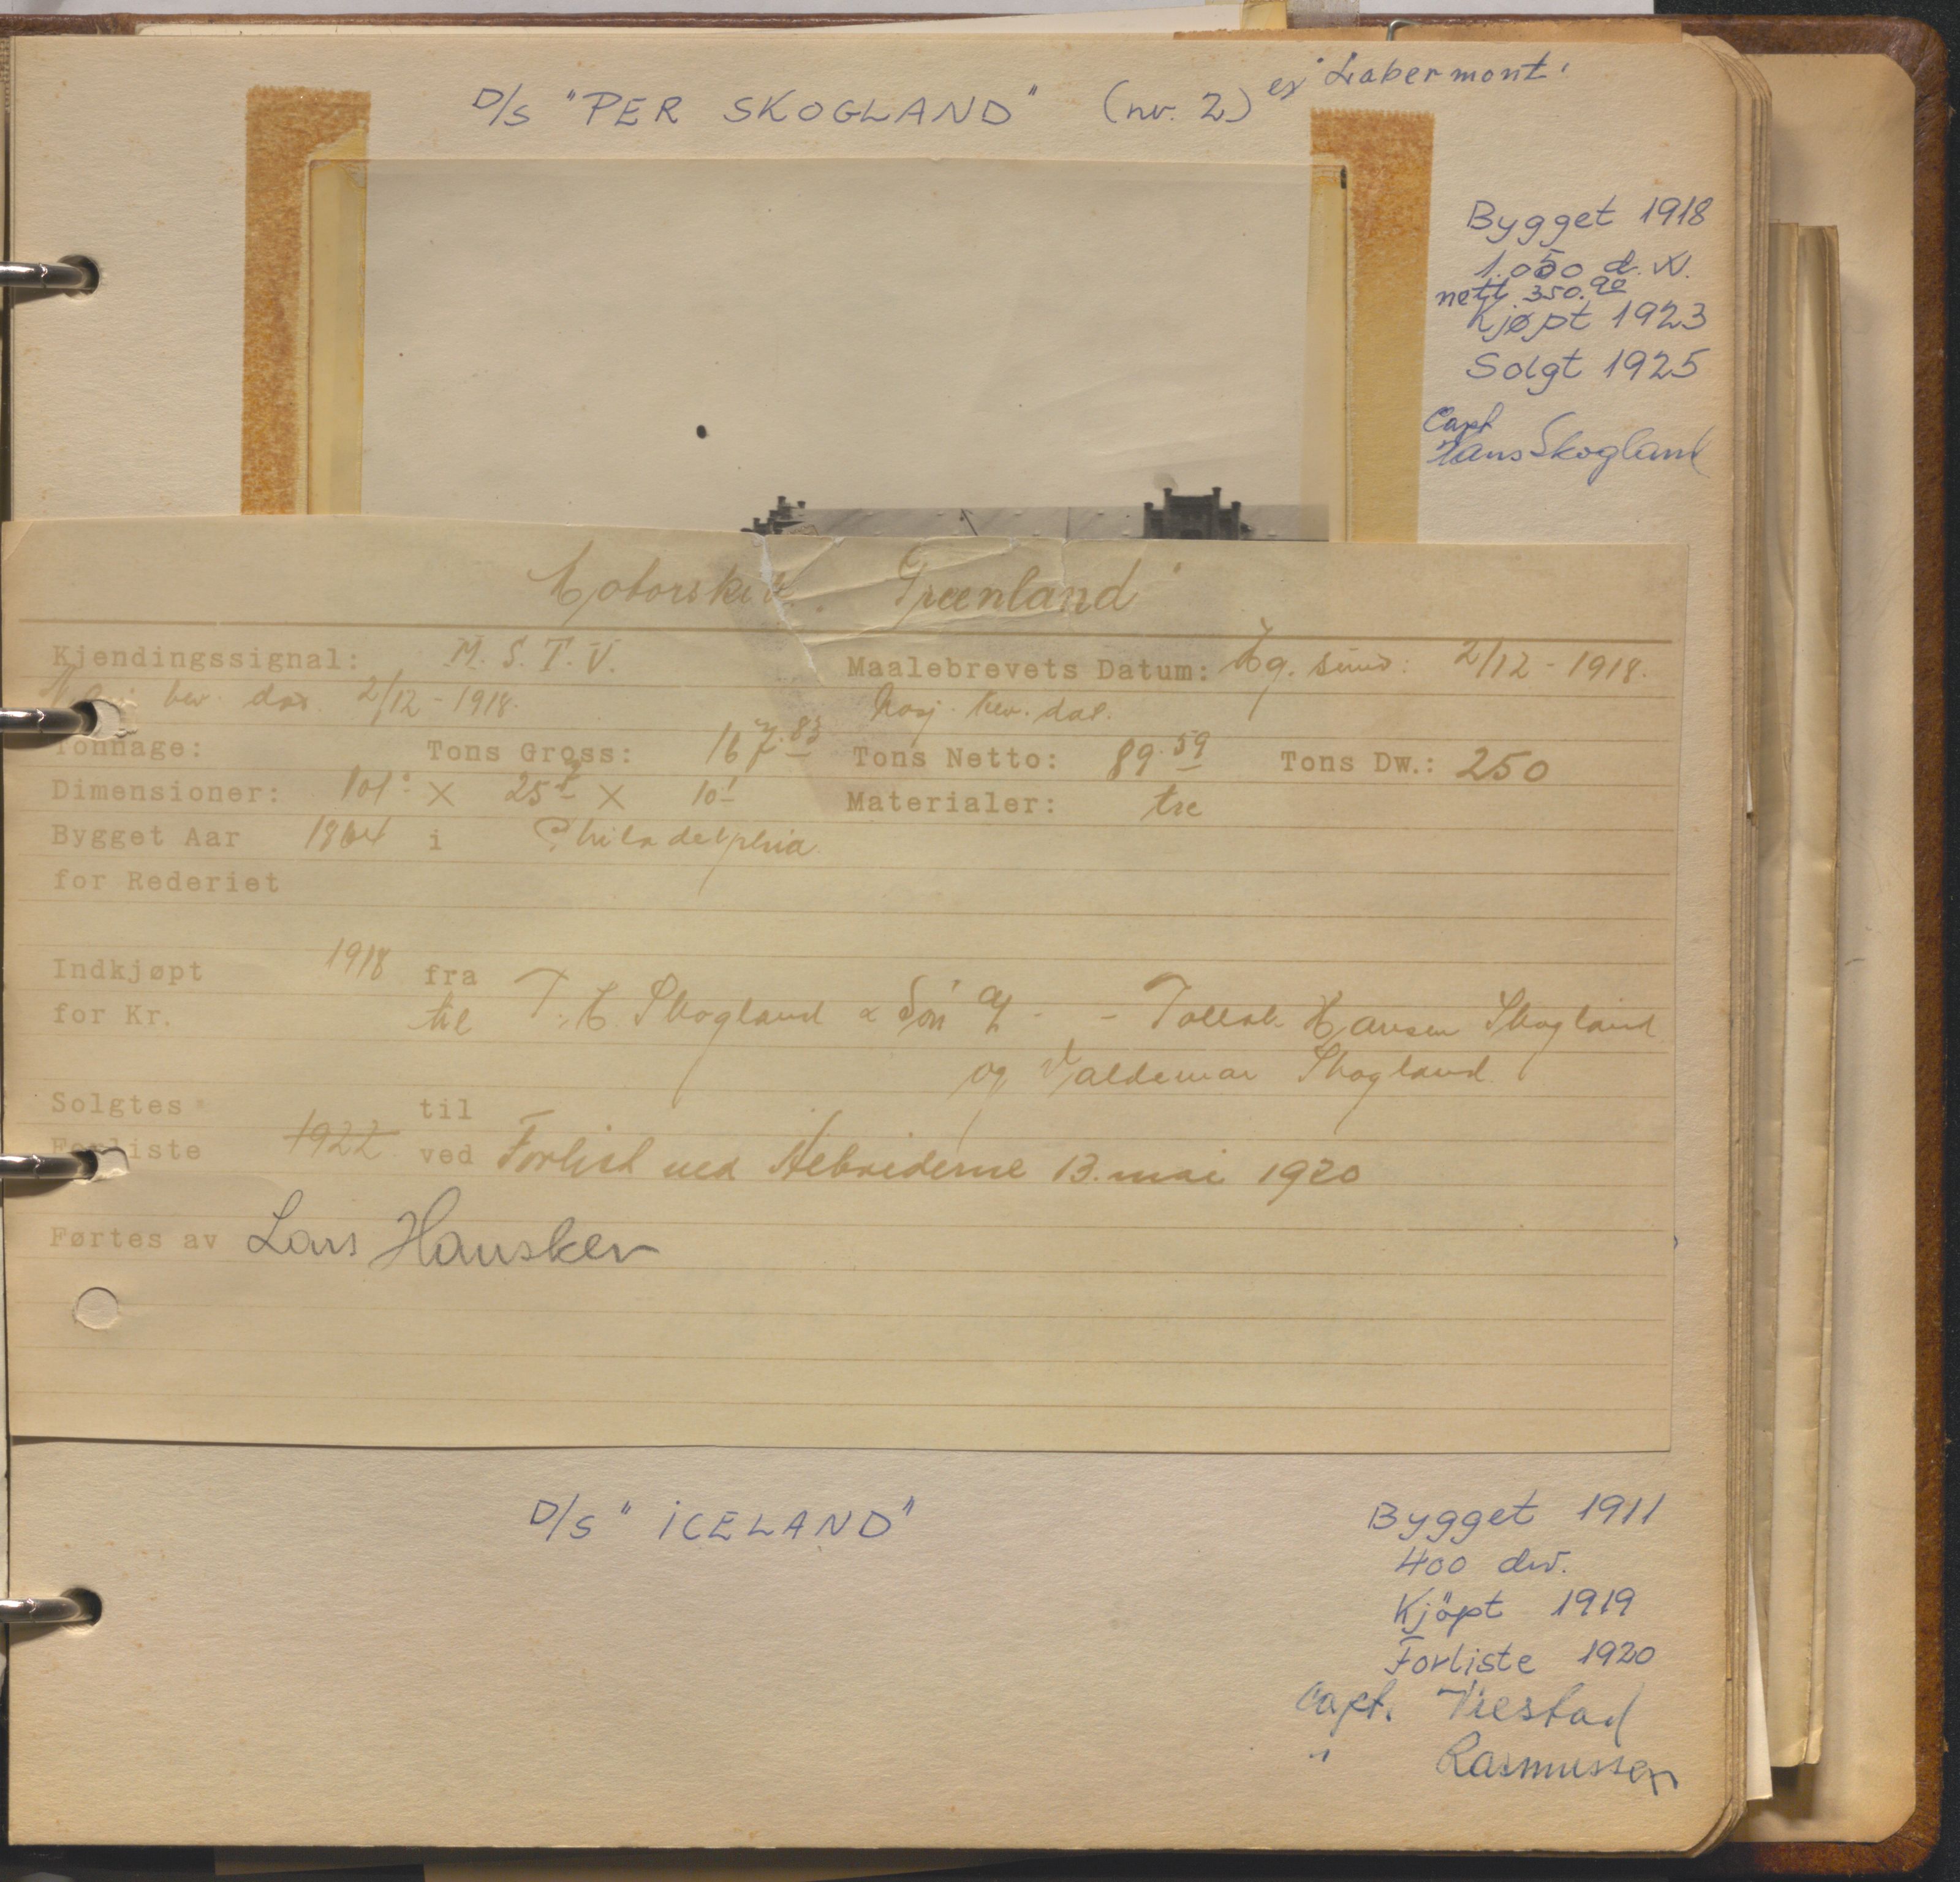 D/S "PER SKOGLAND" (nr. 2) ex "Labermont"
Bygget 1918
1.050 d.w.
nett. 350.90
Kjøpt 1923
Solgt 1925
Capt
Hans Skogland
Motorskib. "Greenland"
Kjendingssignal: M. S. T. V.
Maalebrevets Datum: Hg. sund: 2/12 - 1918.
bev. dat. 2/12 - 1918.
Nasj. bev. dat.
Tonnage: Tons Gross: 167.83 Tons Netto: 89.59 Tons Dw.: 250
Dimensioner: 101 X 25 X 10 Materialer: tre
Bygget Aar 1864 i Philadelphia.
for Rederiet
Indkjøpt 1918 fra
for Kr. til T. H. Skogland & Søn - Hansen Skogland
og Valdemar Skogland.
Solgtes til
Forliste 1922 ved Forlist ved Hebriderne 13. mai 1920
Førtes av Lars Hausken
D/S "ICELAND"
Bygget 1911
400 dw.
Kjöpt 1919
Forliste 1920
Capt. Viestad
" Rasmussen